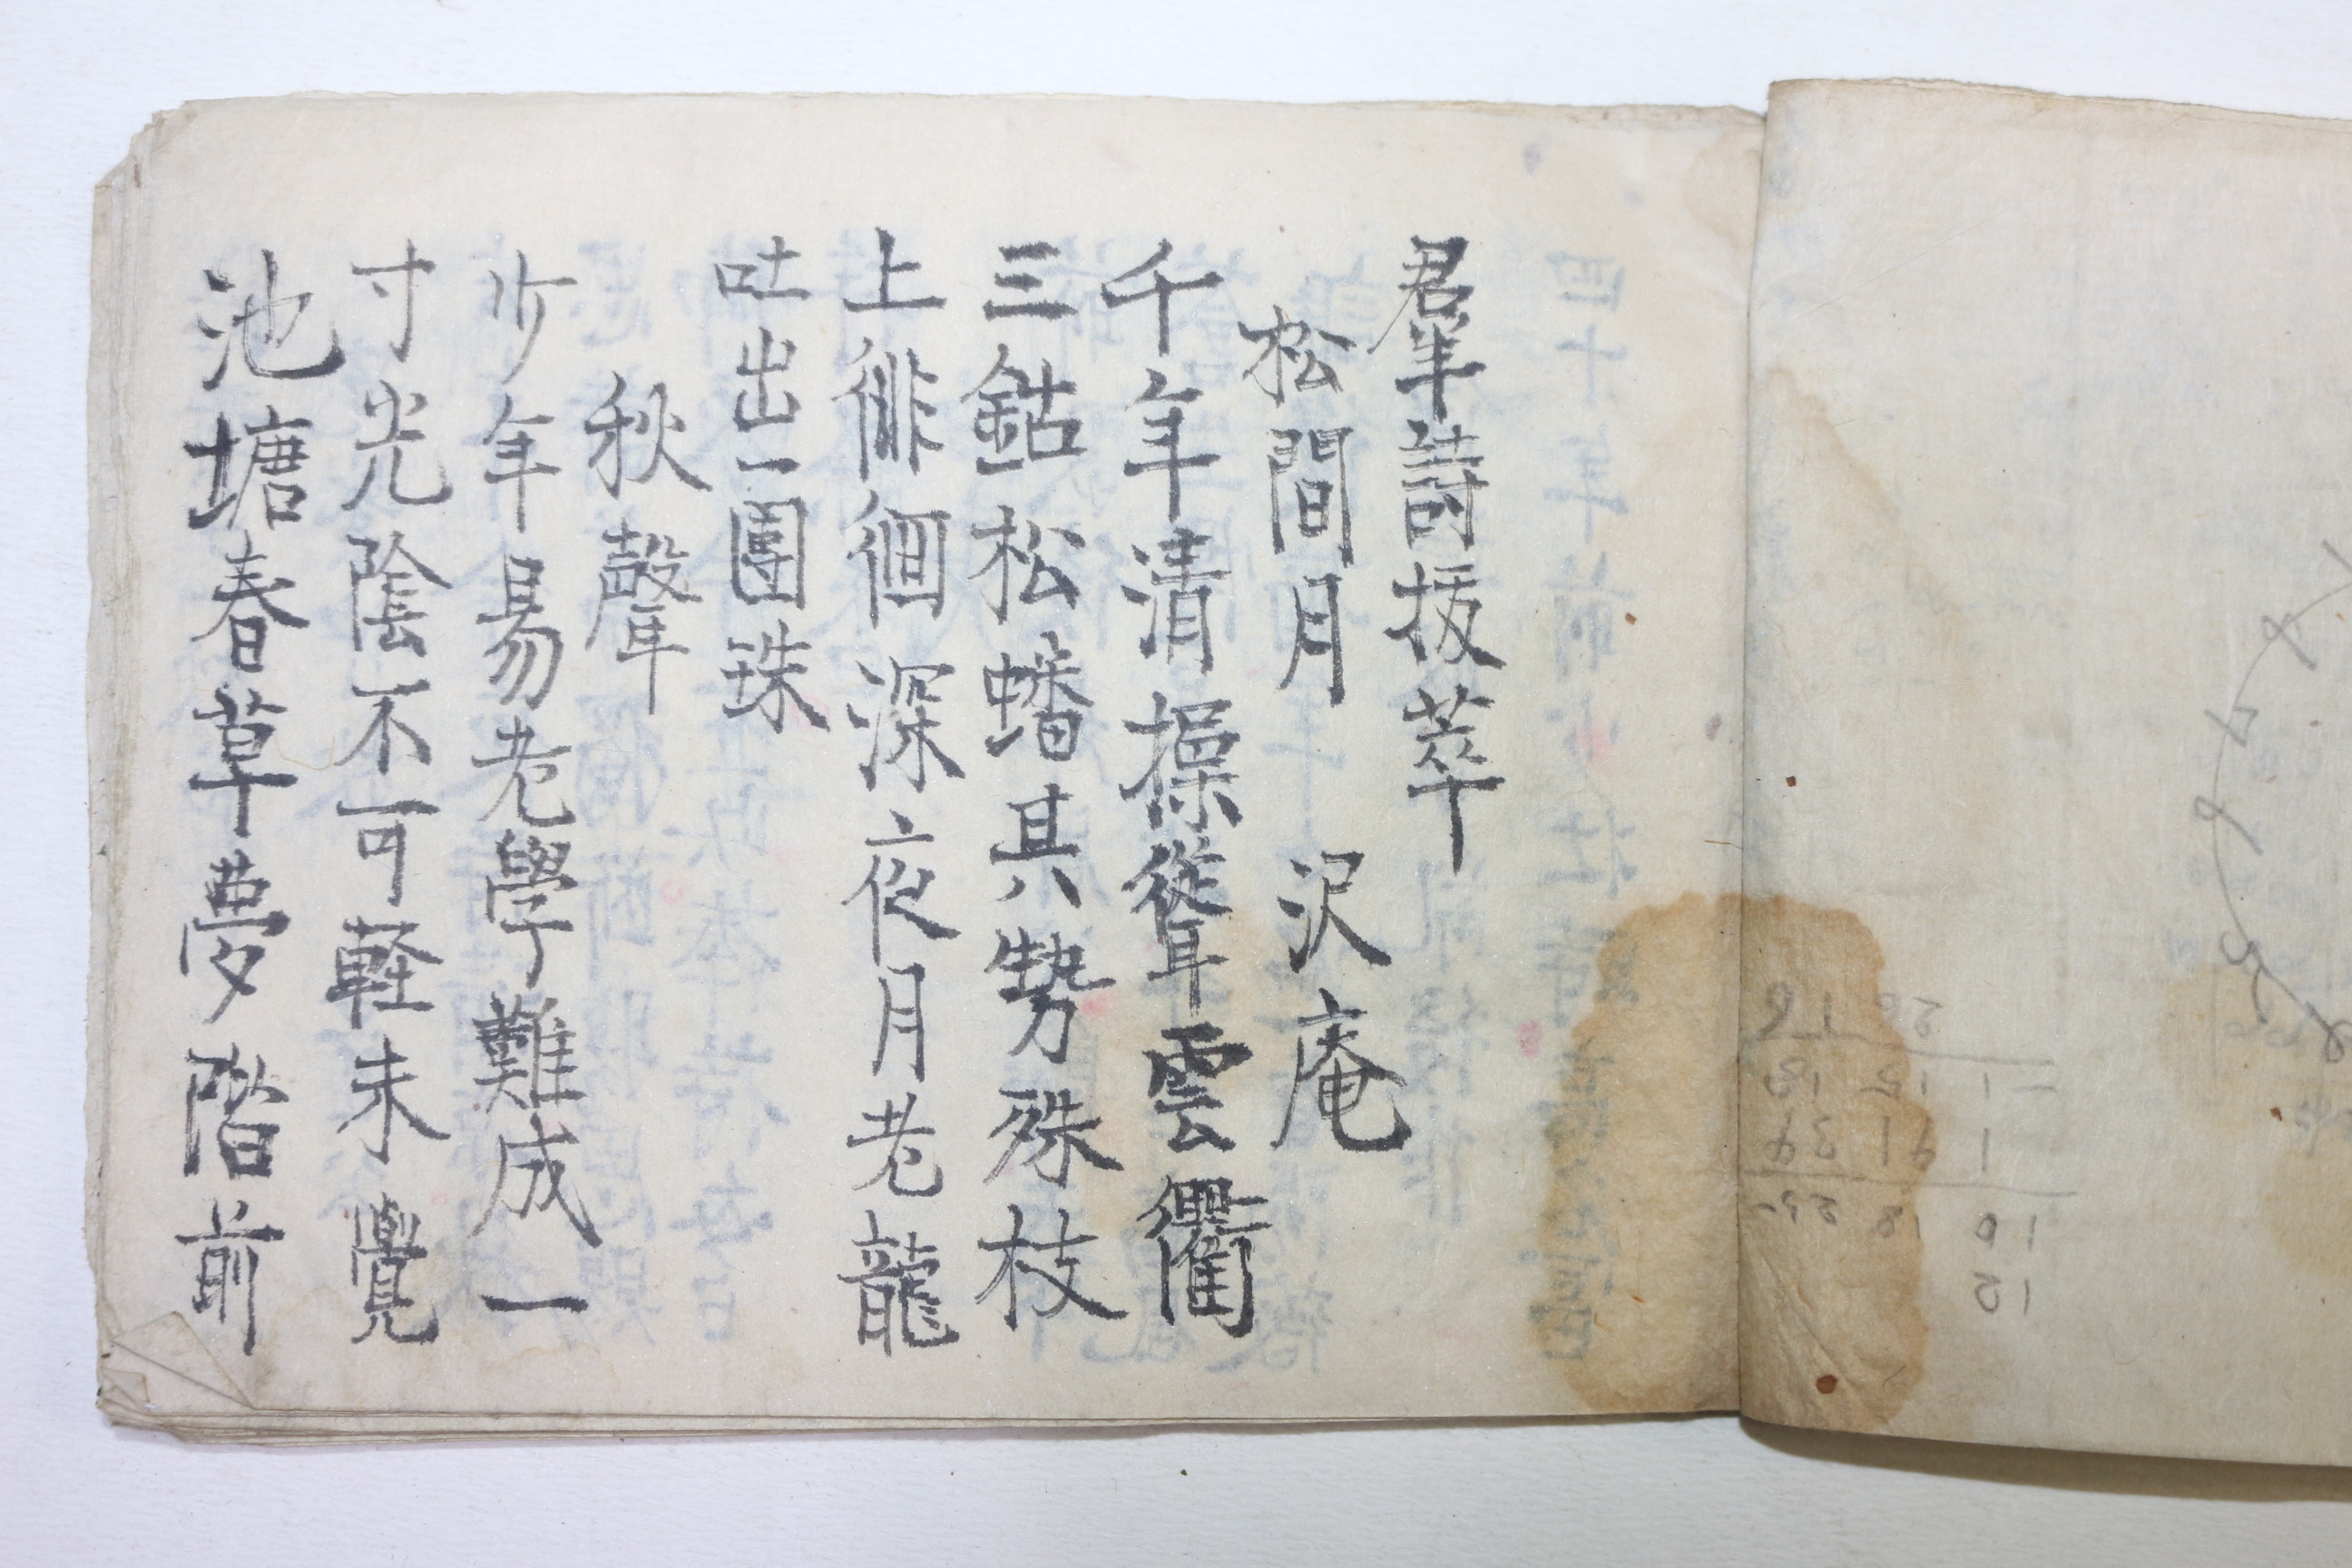 羣詩抜萃
松間月　沢庵
千年清操聳雲衢
三鈷松蟠其勢殊枝
上徘徊深夜月老龍
吐出一團珠
秋聲
少年易老學難成一
寸光陰不可軽未覺
池塘春草夢階前